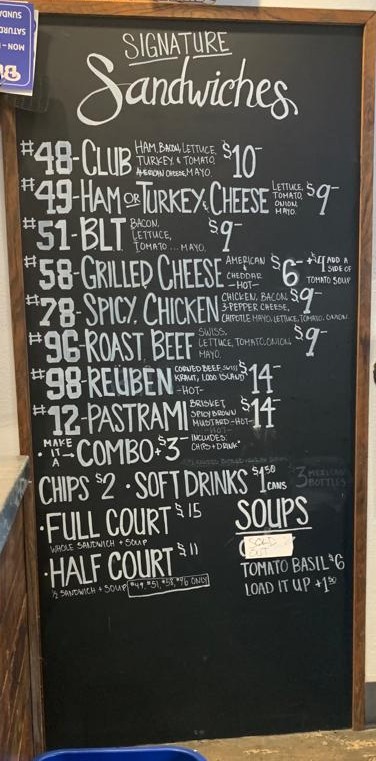 MON -
SATURD
SUNDA
SIGNATURE
Sandwiches
#48-CLUB HAM, BACON, LETTUCE, TURKEY, & TOMATO, AMERICAN CHEESE, MAYO. $10-
#49-HAM OR TURKEY & CHEESE LETTUCE, TOMATO, ONION, MAYO. $9-
#51-BLT BACON, LETTUCE, TOMATO... MAYO. $9-
#58-GRILLED CHEESE AMERICAN CHEDDAR -HOT- $6- ADD A SIDE OF TOMATO SOUP
#78-SPICY CHICKEN CHICKEN, BACON, 3-PEPPER CHEESE, CHIPOTLE MAYO, LETTUCE, TOMATO, ONION. $9-
#96-ROAST BEEF SWISS, LETTUCE, TOMATO, ONION, MAYO. $9-
#98-REUBEN CORNED BEEF, SWISS, KRAUT, 1,000 ISLAND -HOT- $14-
#12-PASTRAMI BRISKET, SPICY BROWN MUSTARD -HOT- $14-
• MAKE IT A COMBO +$3- INCLUDES: CHIPS + DRINK
CHIPS $2 • SOFT DRINKS $1.50 CANS $3 MEXICAN BOTTLES
•FULL COURT $15
WHOLE SANDWICH + SOUP
•HALF COURT $11
½ SANDWICH + SOUP #49, #51, #58, #96 ONLY
SOUPS
SOLD OUT
TOMATO BASIL $6
LOAD IT UP +1.50